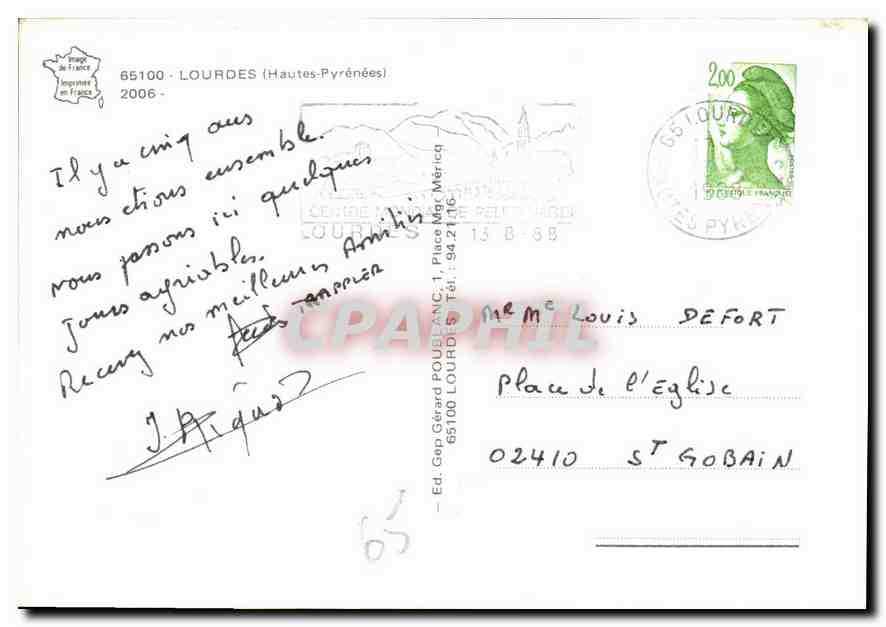 Image
de France
Imprimée
en France
65100 - LOURDES (Hautes-Pyrénées)
2006 -
Il y a cinq ans
nous étions ensemble.
nous passons ici quelques
Jours agréables.
Recevez nos meilleures Amitiés
TRAPPLER
CENTRE MONDIAL DE PELERINAGE
LOURDES 13-8-88
— Ed. Gep Gérard POUBLANC, 1, Place Mgr Méricq
65100 LOURDES - Tél. : 94.21.16
2,00
65 LOURDES
HAUTES PYRENEES
CPAPHIL
Mr Me Louis DEFORT
Place de l'Eglise
02410 St GOBAIN
65